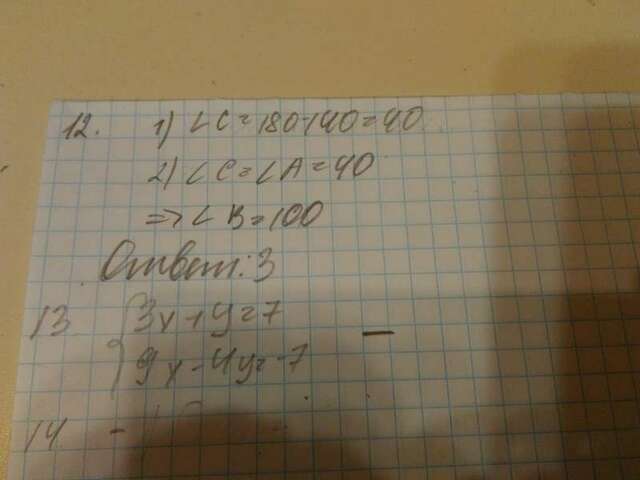 12. 1) ∠C=180-140=40
2) ∠C=∠A=40
=> ∠B=100
Ответ: 3
13 {3x+y=7
9x-4y=-7
14 -